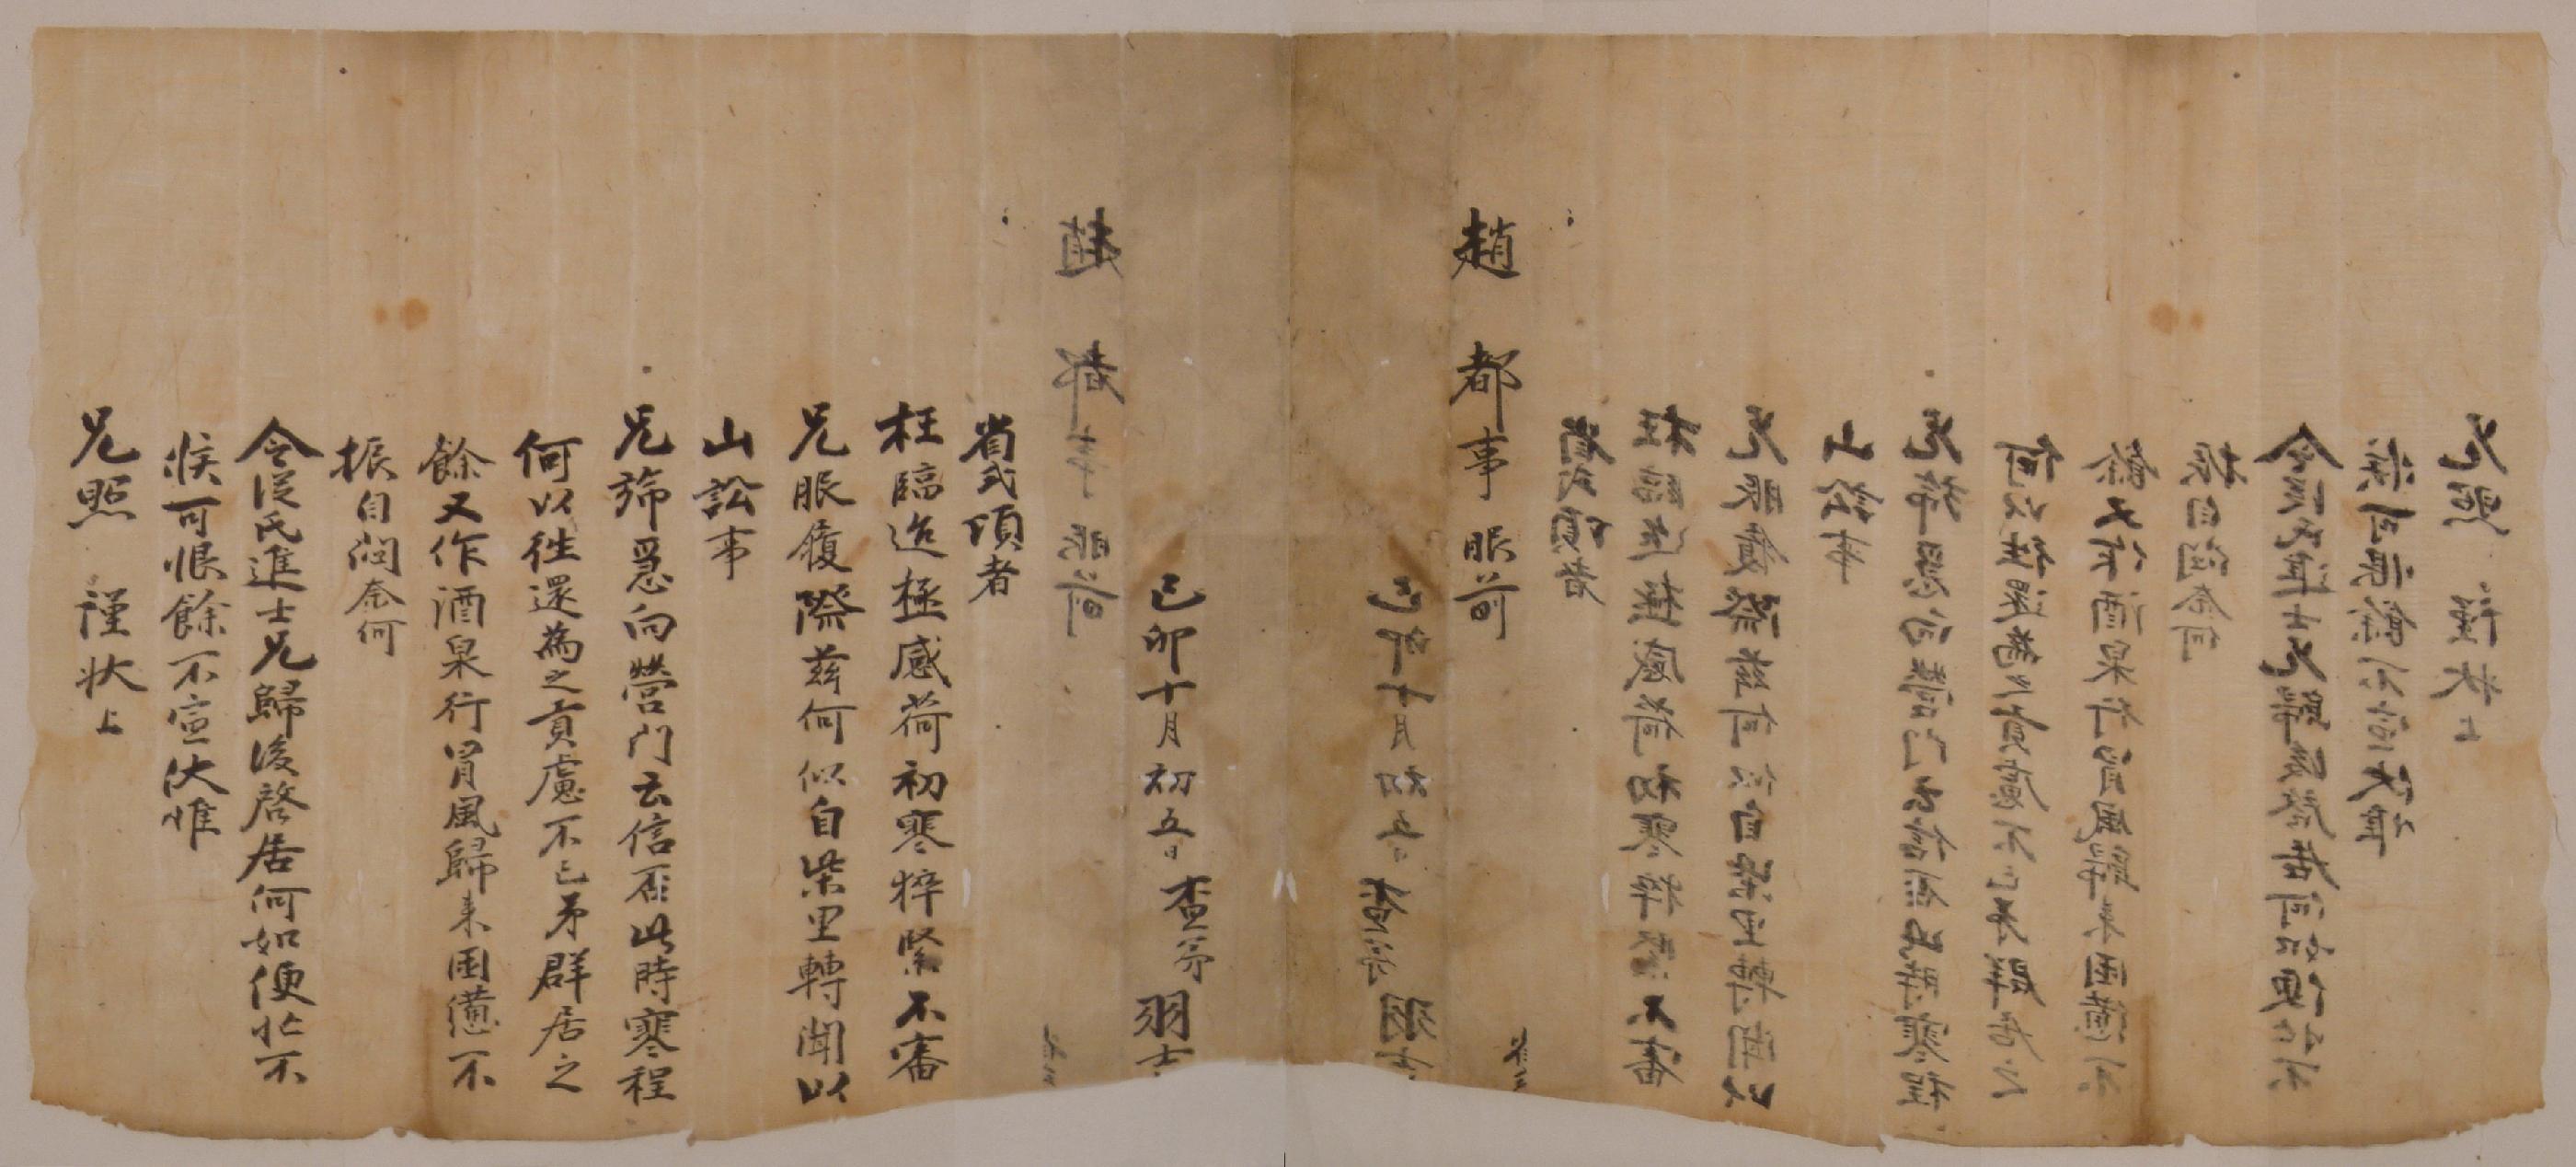 趙都事服前
己卯十月初五日 査弟 羽士
省式頃者
枉臨迨極感荷初寒猝緊不審
兄服履際玆何似自柴里轉聞以
山訟事
兄旆急向營門云信否此時寒程
何以往還為之貢慮不已弟群居之
餘又作酒泉行冒風歸來困憊不
振自悶奈何
令從氏進士兄歸後啓居何如便忙不
候可恨餘不宣伏惟
兄照 謹狀上